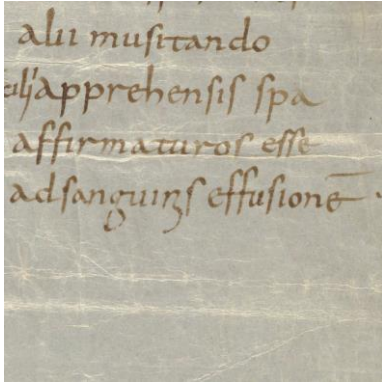 alii musitando
apprehensis spa
affirmaturos esse
ad sanguinis effusionē ·